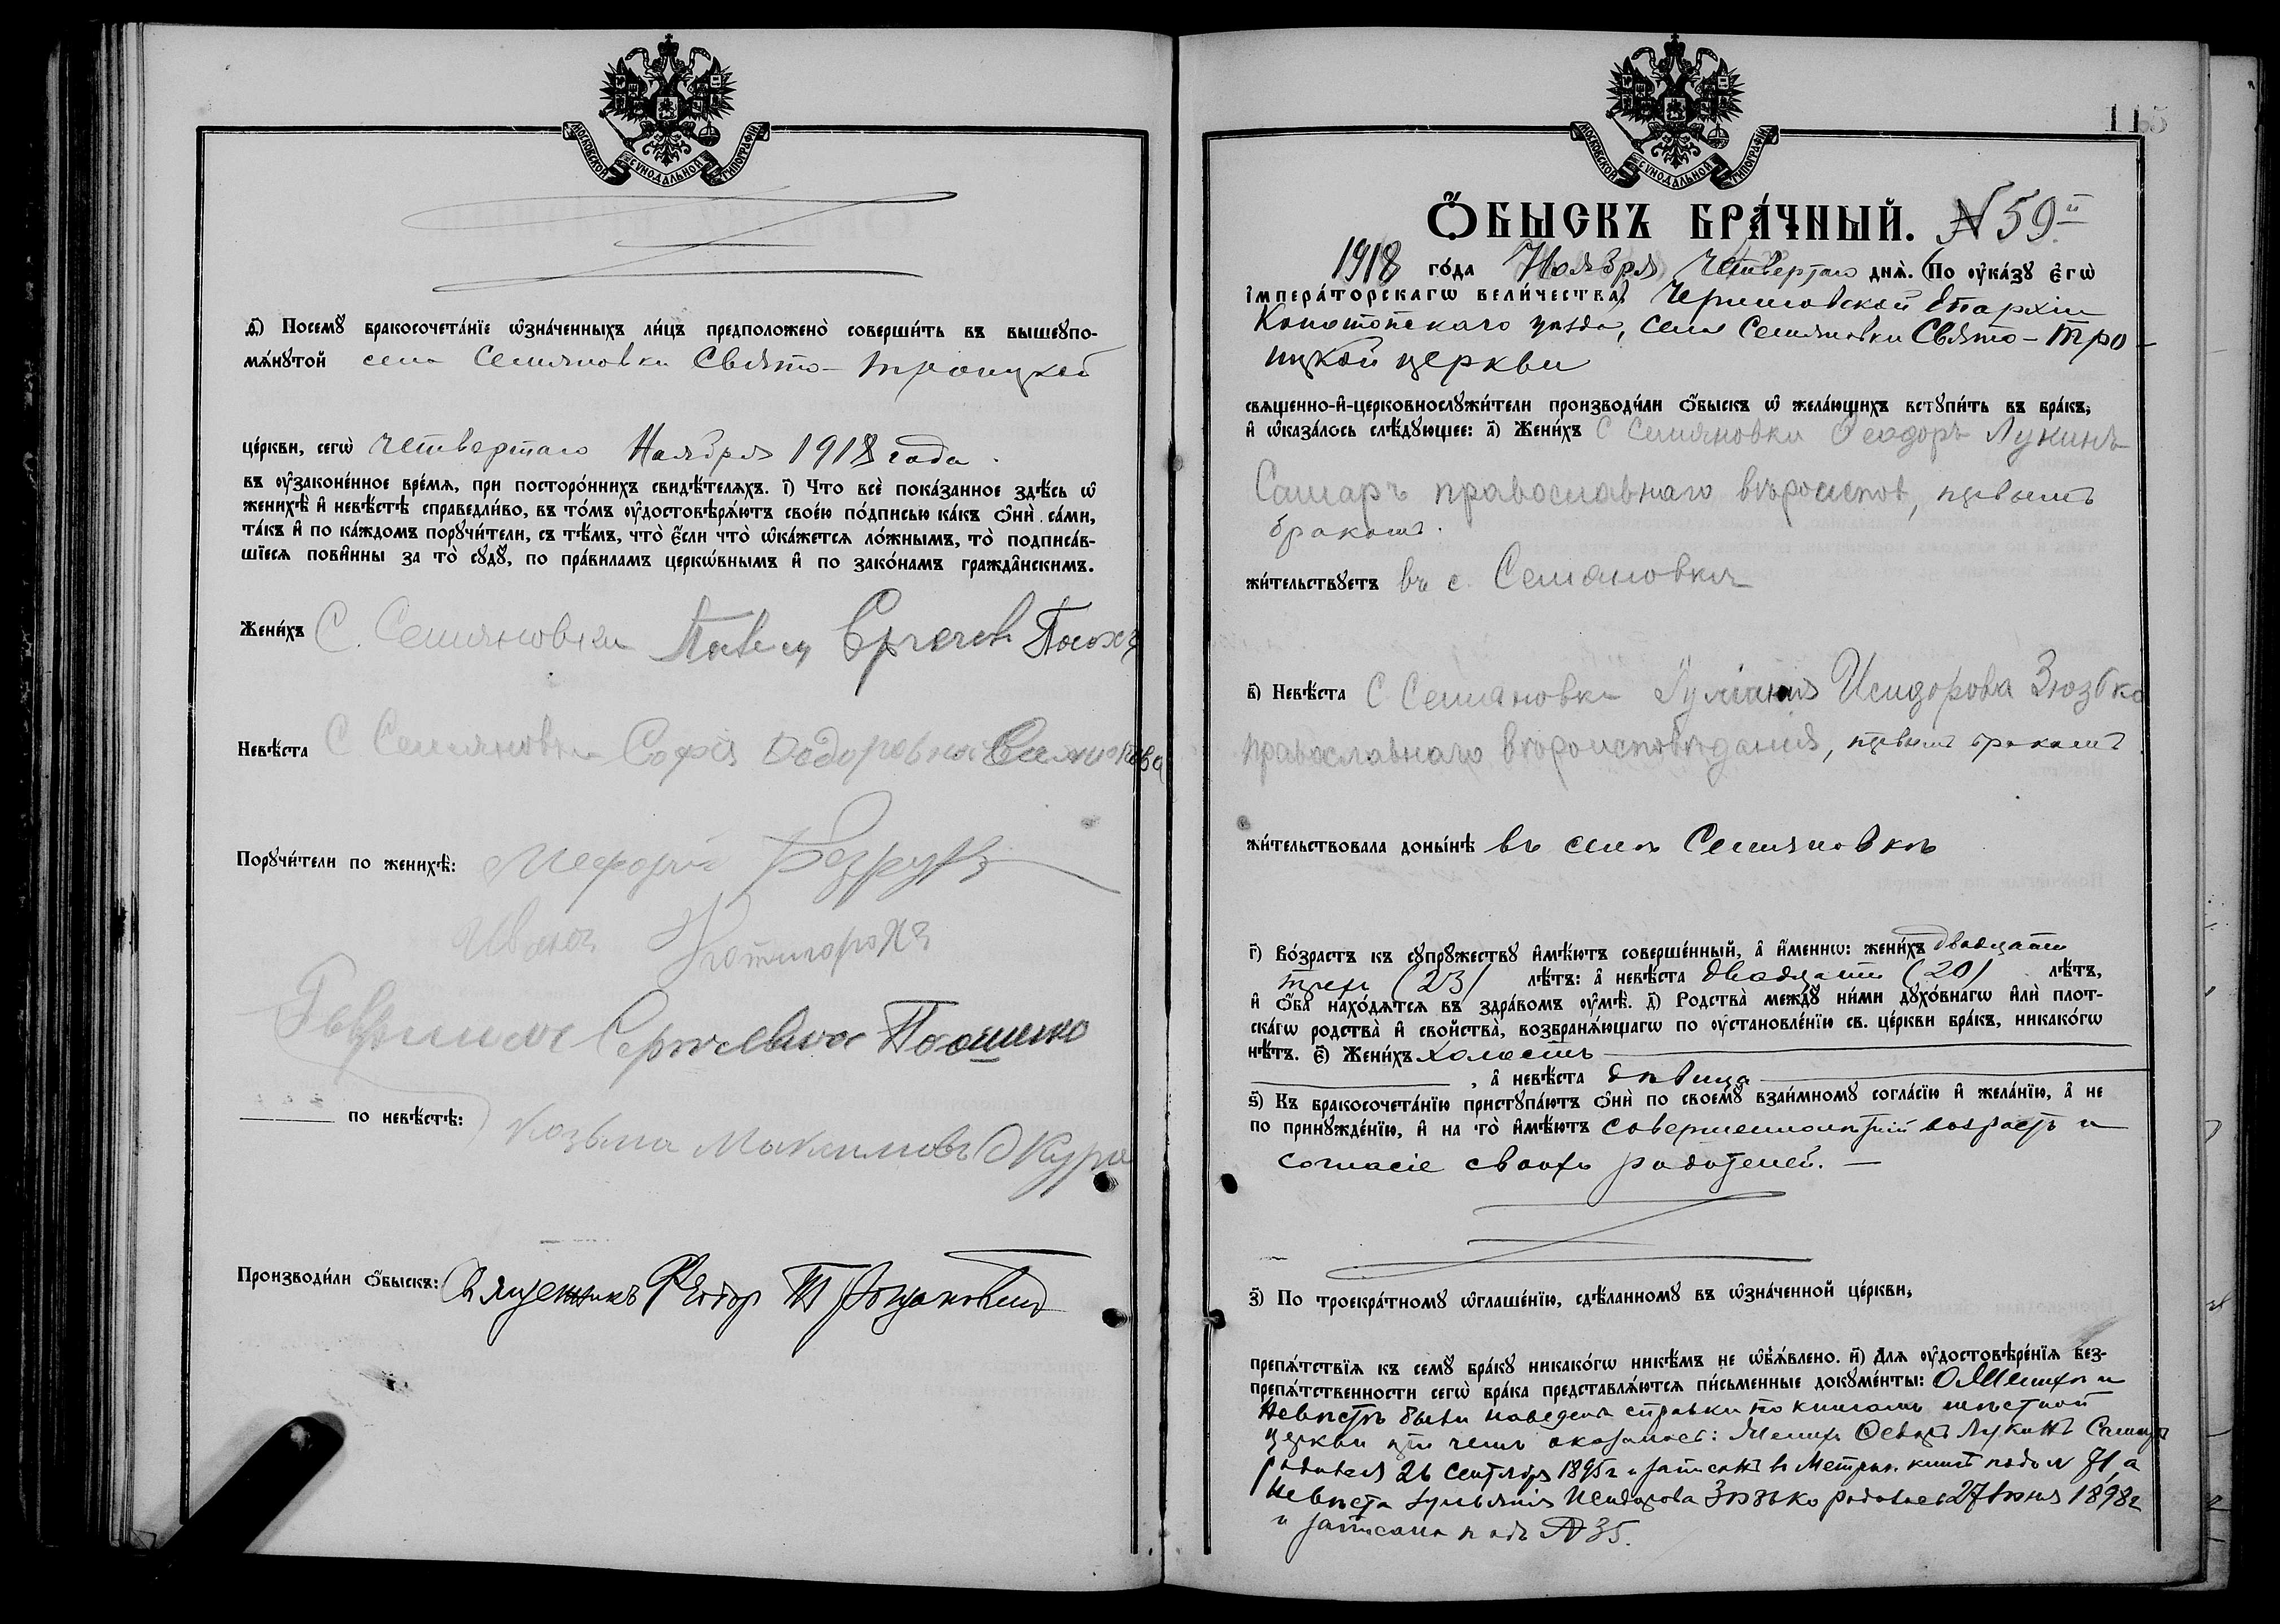 МОСКОВСКОЙ СѴНОДАЛЬНОЙ ТИПОГРАФІИ
ѳ҃) Посемꙋ̀ бракосочета́нїе ѡ҆зна́ченныхъ ли́цъ предположено̀ соверши́ть въ вышеꙋпо-
мѧ́нꙋтой села Семяновки Свято-Троицкой
це́ркви, сегѡ̀ четвертаго Ноября 1918 года.
въ ᲂу҆законе́нное вре́мѧ, при посторо́ннихъ свидѣ́телѧхъ. і҃) Что всѐ пока́занное здѣ́сь ѡ҆
женихѣ̀ и҆ невѣ́стѣ справедли́во, въ то́мъ ᲂу҆достовѣрѧ́ютъ свое́ю по́дписью ка́къ ѻ҆нѝ са́ми,
та́къ и҆ по ка́ждомъ порꙋчи́тели, съ тѣ́мъ, что̀ є҆́сли что̀ ѡ҆ка́жетсѧ ло́жнымъ, то̀ подписа́в-
шїесѧ пови́нны за то̀ сꙋдꙋ̀, по пра́виламъ церко́внымъ и҆ по зако́намъ гражда́нскимъ.
Жени́хъ С. Семяновки
Невѣ́ста С Семяновки Софія
Порꙋчи́тели по женихѣ̀: Безрукъ
Иванъ
Сергѣевичъ
по невѣ́стѣ: Козьма Максимовъ
Производи́ли ѻ҆́быскъ: Священникъ Феодор
115
МОСКОВСКОЙ СѴНОДАЛЬНОЙ ТИПОГРАФІИ
Ѻ҆́БЫСКЪ БРА́ЧНЫЙ. № 59й
1918 го́да Ноября четвертаго днѧ̀. (По ᲂу҆ка́зꙋ є҆гѡ̀
і҆мпера́торскагѡ вели́чества) Черниговской Епархіи
Конотопскаго уѣзда, села Семяновки Свято-Тро-
ицкой церкви
свѧщенно-и҆-церковнослꙋжи́тели производи́ли ѻ҆́быскъ ѡ҆ жела́ющихъ встꙋпи́ть въ бра́къ,
и҆ ѡ҆каза́лось слѣ́дꙋющее: а҃) Жени́хъ С Семяновки Ѳеодоръ Лукинъ
Самаръ православнаго вѣроиспов, первымъ
бракомъ.
жи́тельствꙋетъ въ с. Семяновкѣ
в҃) Невѣ́ста С Семяновки Іуліанія Исидорова Зюзько
православнаго вѣроисповѣданія, первымъ бракомъ
жи́тельствовала доны́нѣ въ селѣ Семяновкѣ
г҃) Во́зрастъ къ сꙋпрꙋ́жествꙋ и҆мѣ́ютъ соверше́нный, а҆ и҆́меннѡ: жени́хъ двадцати
трехъ (23) лѣ́тъ: а҆ невѣ́ста двадцати (20) лѣ́тъ,
и҆ ѻ҆́ба нахо́дѧтсѧ въ здра́вомъ ᲂу҆мѣ̀. д҃) Родства̀ междꙋ̀ ни́ми дꙋхо́внагѡ и҆лѝ плот-
ска́гѡ родства̀ и҆ сво́йства, возбранѧ́ющагѡ по ᲂу҆становле́нїю св. це́ркви бра́къ, никако́гѡ
нѣ́тъ. є҃) Жени́хъ холостъ
, а҆ невѣ́ста дѣвица
ѕ҃) Къ бракосочета́нїю пристꙋпа́ютъ ѻ҆нѝ по своемꙋ̀ взаи́мномꙋ согла́сїю и҆ жела́нїю, а҆ не
по принꙋжде́нїю, и҆ на то̀ и҆мѣ́ютъ совершеннолѣтній возрастъ и
согласіе своихъ родителей. —
з҃) По троекра́тномꙋ ѡ҆глаше́нїю, сдѣ́ланномꙋ въ ѡ҆зна́ченной це́ркви,
препѧ́тствїѧ къ семꙋ̀ бра́кꙋ никако́гѡ никѣ́мъ не ѡ҆б̾ѧ́влено. и҃) Для ᲂу҆достовѣре́нїѧ без-
препѧ́тственности сегѡ̀ бра́ка представлѧ́ютсѧ пи́сьменные докꙋме́нты: О Женихѣ и
Невѣстѣ были наведены справки по книгамъ мѣстной
церкви при чемъ оказалось: Женихъ Ѳеодоръ Лукинъ Самаръ
родился 26 сентября 1895 г и записанъ въ Метрич. книгѣ подъ № 71, а
Невѣста Іульянія Исидорова Зюзько родилась 27 Іюня 1898 г
и записана подъ № 35.